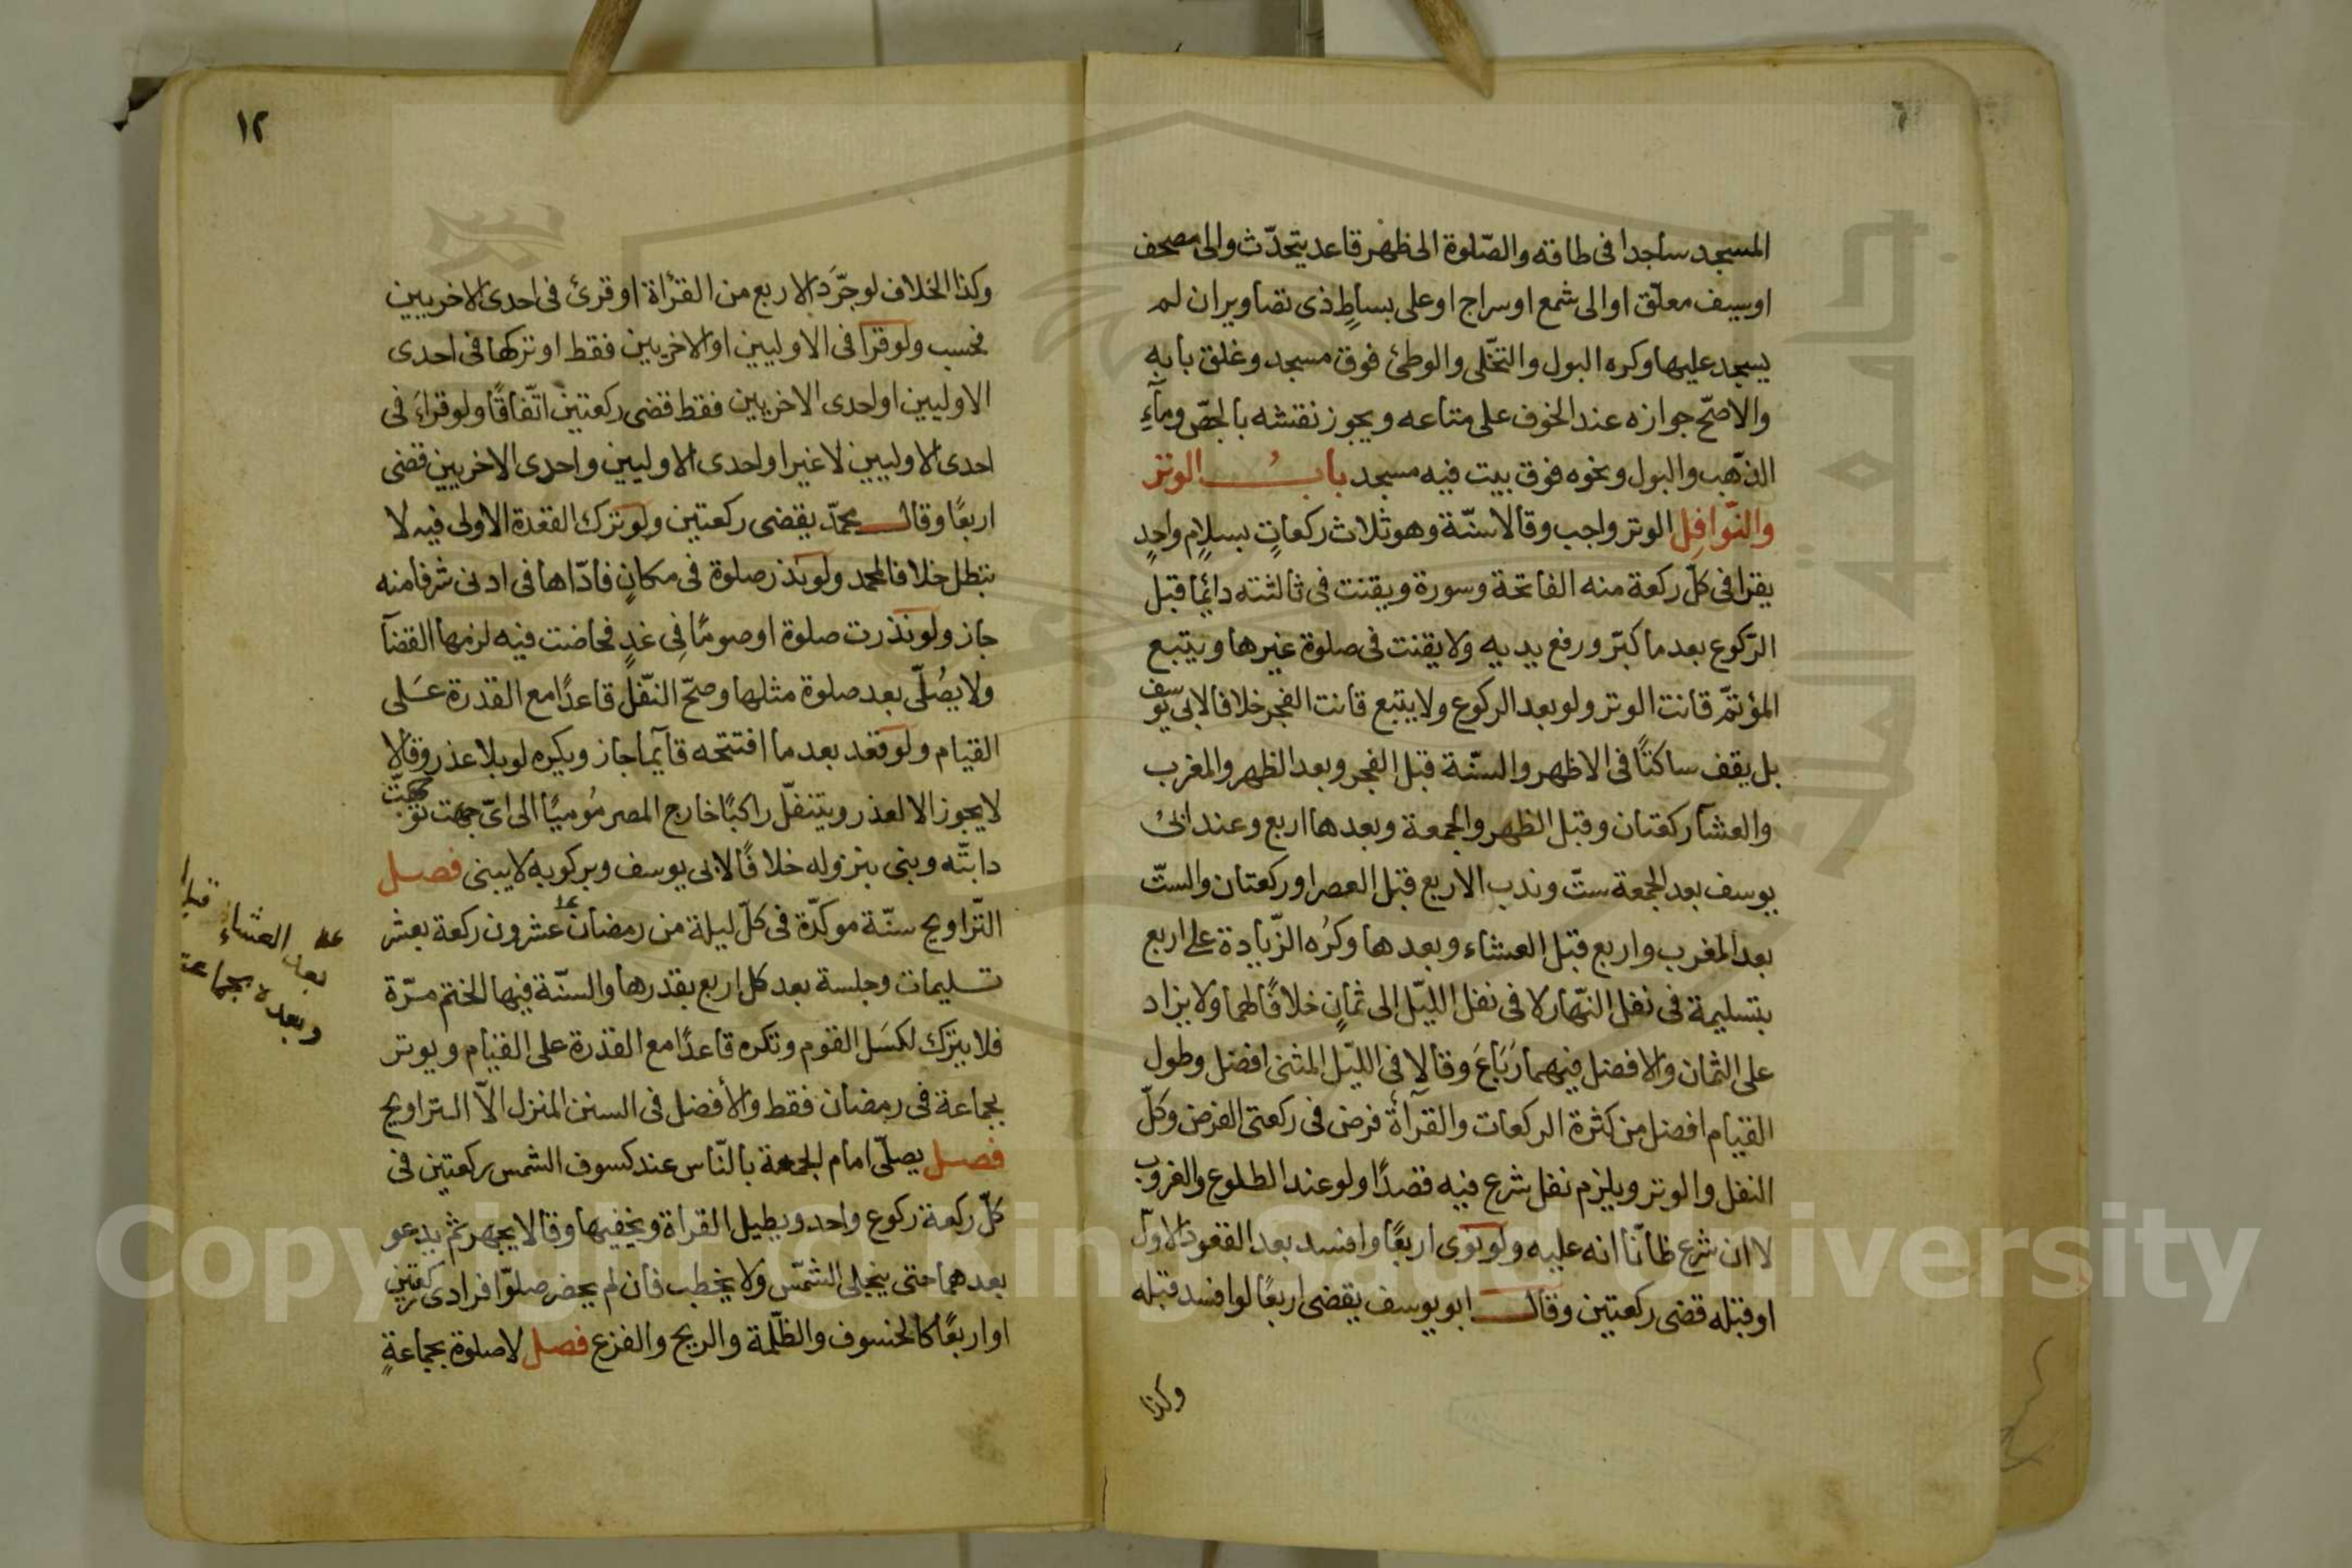 المسجد ساجدا فى طاقه والصّلوة الى ظهر قاعد يتحدّث والى مصحف
او سيف معلّق او الى شمع او سراج او على بساطٍ ذى تصاوير ان لم
يسجد عليها وكره البول والتخّلى والوطئ فوق مسجد وغلق بابه
والاصّح جوازه عند الخوف على متاعه ويجوز نقشه بالجصّ وماءِ
الذّهب والبول ونحوه فوق بيت فيه مسجد بابُ الوتر
والنّوافِل الوتر واجب وقالا سنّة وهو ثلاث ركعاتٍ بسلامٍ واحدٍ
يقرا فى كلّ ركعة منه الفاتحة وسورة ويقنت فى ثالثته دائمًا قبل
الرّكوع بعد ما كبّر ورفع يديه ولا يقنت فى صلوة غيرها ويتبع
المؤتمّ قانت الوتر ولو بعد الركوع ولا يتبع قانت الفجر خلافا لابى يوسف
بل يقف ساكتًا فى الاظهر والسنّة قبل الفجر وبعد الظهر والمغرب
والعشآ ركعتان وقبل الظهر والجمعة وبعدها اربع وعند ابى
يوسف بعد الجمعة ستّ وندب الاربع قبل العصر او ركعتان والستّ
بعد المغرب واربع قبل العشاء وبعدها وكرُه الزّيادة على اربع
بتسليمة فى نفل النّهار لا فى نفل الليّل الى ثمانٍ خلافًا لهما ولا يزاد
على الثمان والافضل فيهما رَبَاعَ وقالا فى الليّل المثنى افضل وطول
القيام افضل من كثرة الركعات والقرآءة فرض فى ركعتى الفرض وكلّ
النفل والوتر ويلزم نفل شرع فيه قصدًا ولو عند الطلوع والغروب
لا ان شرع ظانّا انه عليه ولو نوى اربعًا وافسد بعد القعود الاوّل
او قبله قضى ركعتين وقال ابو يوسف يقضى اربعًا لو افسد قبله
وكذا
١٢
وكذا الخلاف لو جرّدَ الاربع من القرأة او قرئ فى احدى الاخريين
فحسب ولو قرا فى الاوليين او الاخريين فقط او تركها فى احدى
الاوليين او احدى الاخريين فقط قضى ركعتين اتّفاقًا ولو قراءَ فى
احدى الاوليين لا غير او احدى الاوليين واحدى الاخريين قضى
اربعًا وقال محمدّ يقضى ركعتين ولو ترك القعدة الاولى فيه لا
تبطل خلافا لمحمد ولو نذر صلوة فى مكانٍ فادّاها فى ادنى شرفا منه
جاز ولو نذرت صلوة او صومًا فِى غدٍ فحاضت فيه لزمها القضآ
ولا يصُلّى بعد صلوة مثلها وصحّ النّفل قاعدًا مع القدرة عَلى
القيام ولو قعد بعد ما افتتحه قآيما جاز ويكره لو بلا عذر وقالا
لا يجوز الا لعذر ويتنفّل راكبًا خارج المصر مُوميًا الى اىّ جهت توجهّت
دابتّه وبنى بنزوله خلافًا لابى يوسف وبركوبه لا يبنى فصل
التّراويح سنّة موكدّة فى كلّ ليلة من رمضان عشرون ركعة بعشر
تسليمات وجلسة بعد كل اربع بقدرها والسنّة فيها الختم مرّة
فلا يترك لكسَل القوم وتكره قاعدًا مع القدرة على القيام ويوتر
بجماعة فى رمضان فقط والأفضل فى السنن المنزل الاّ التراويح
فصل يصلّى امام الجمعة بالنّاس عند كسوف الشمس ركعتين فى
كلّ ركعة ركوع واحد ويطيل القراة ويخفيها وقالا يجهر ثم يدعو
بعدهما حتى ينجلى الشمّس ولا يخطب فان لم يحضر صلوّا فرادى ركعتين
او اربعًا كالخسوف والظّلمة والريح والفزع فصل لا صلوة بجماعةٍ
بعد العشاء قبل
وبعده بجماعة
Copyright © King Saud University